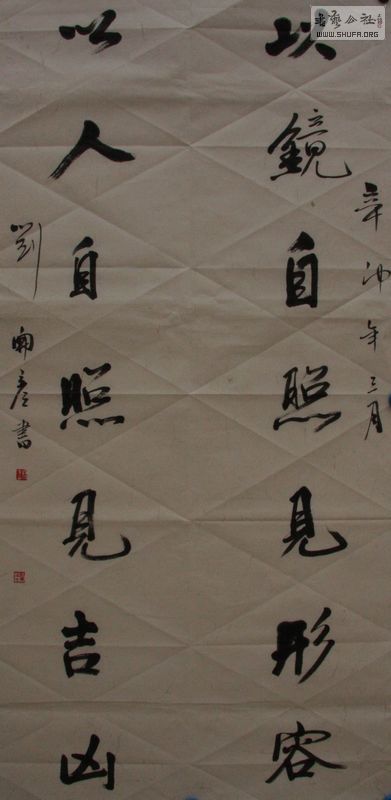 書藝公社
WWW.SHUFA.ORG
辛卯年三月
以鏡自照見形容
以人自照見吉凶
劉
書